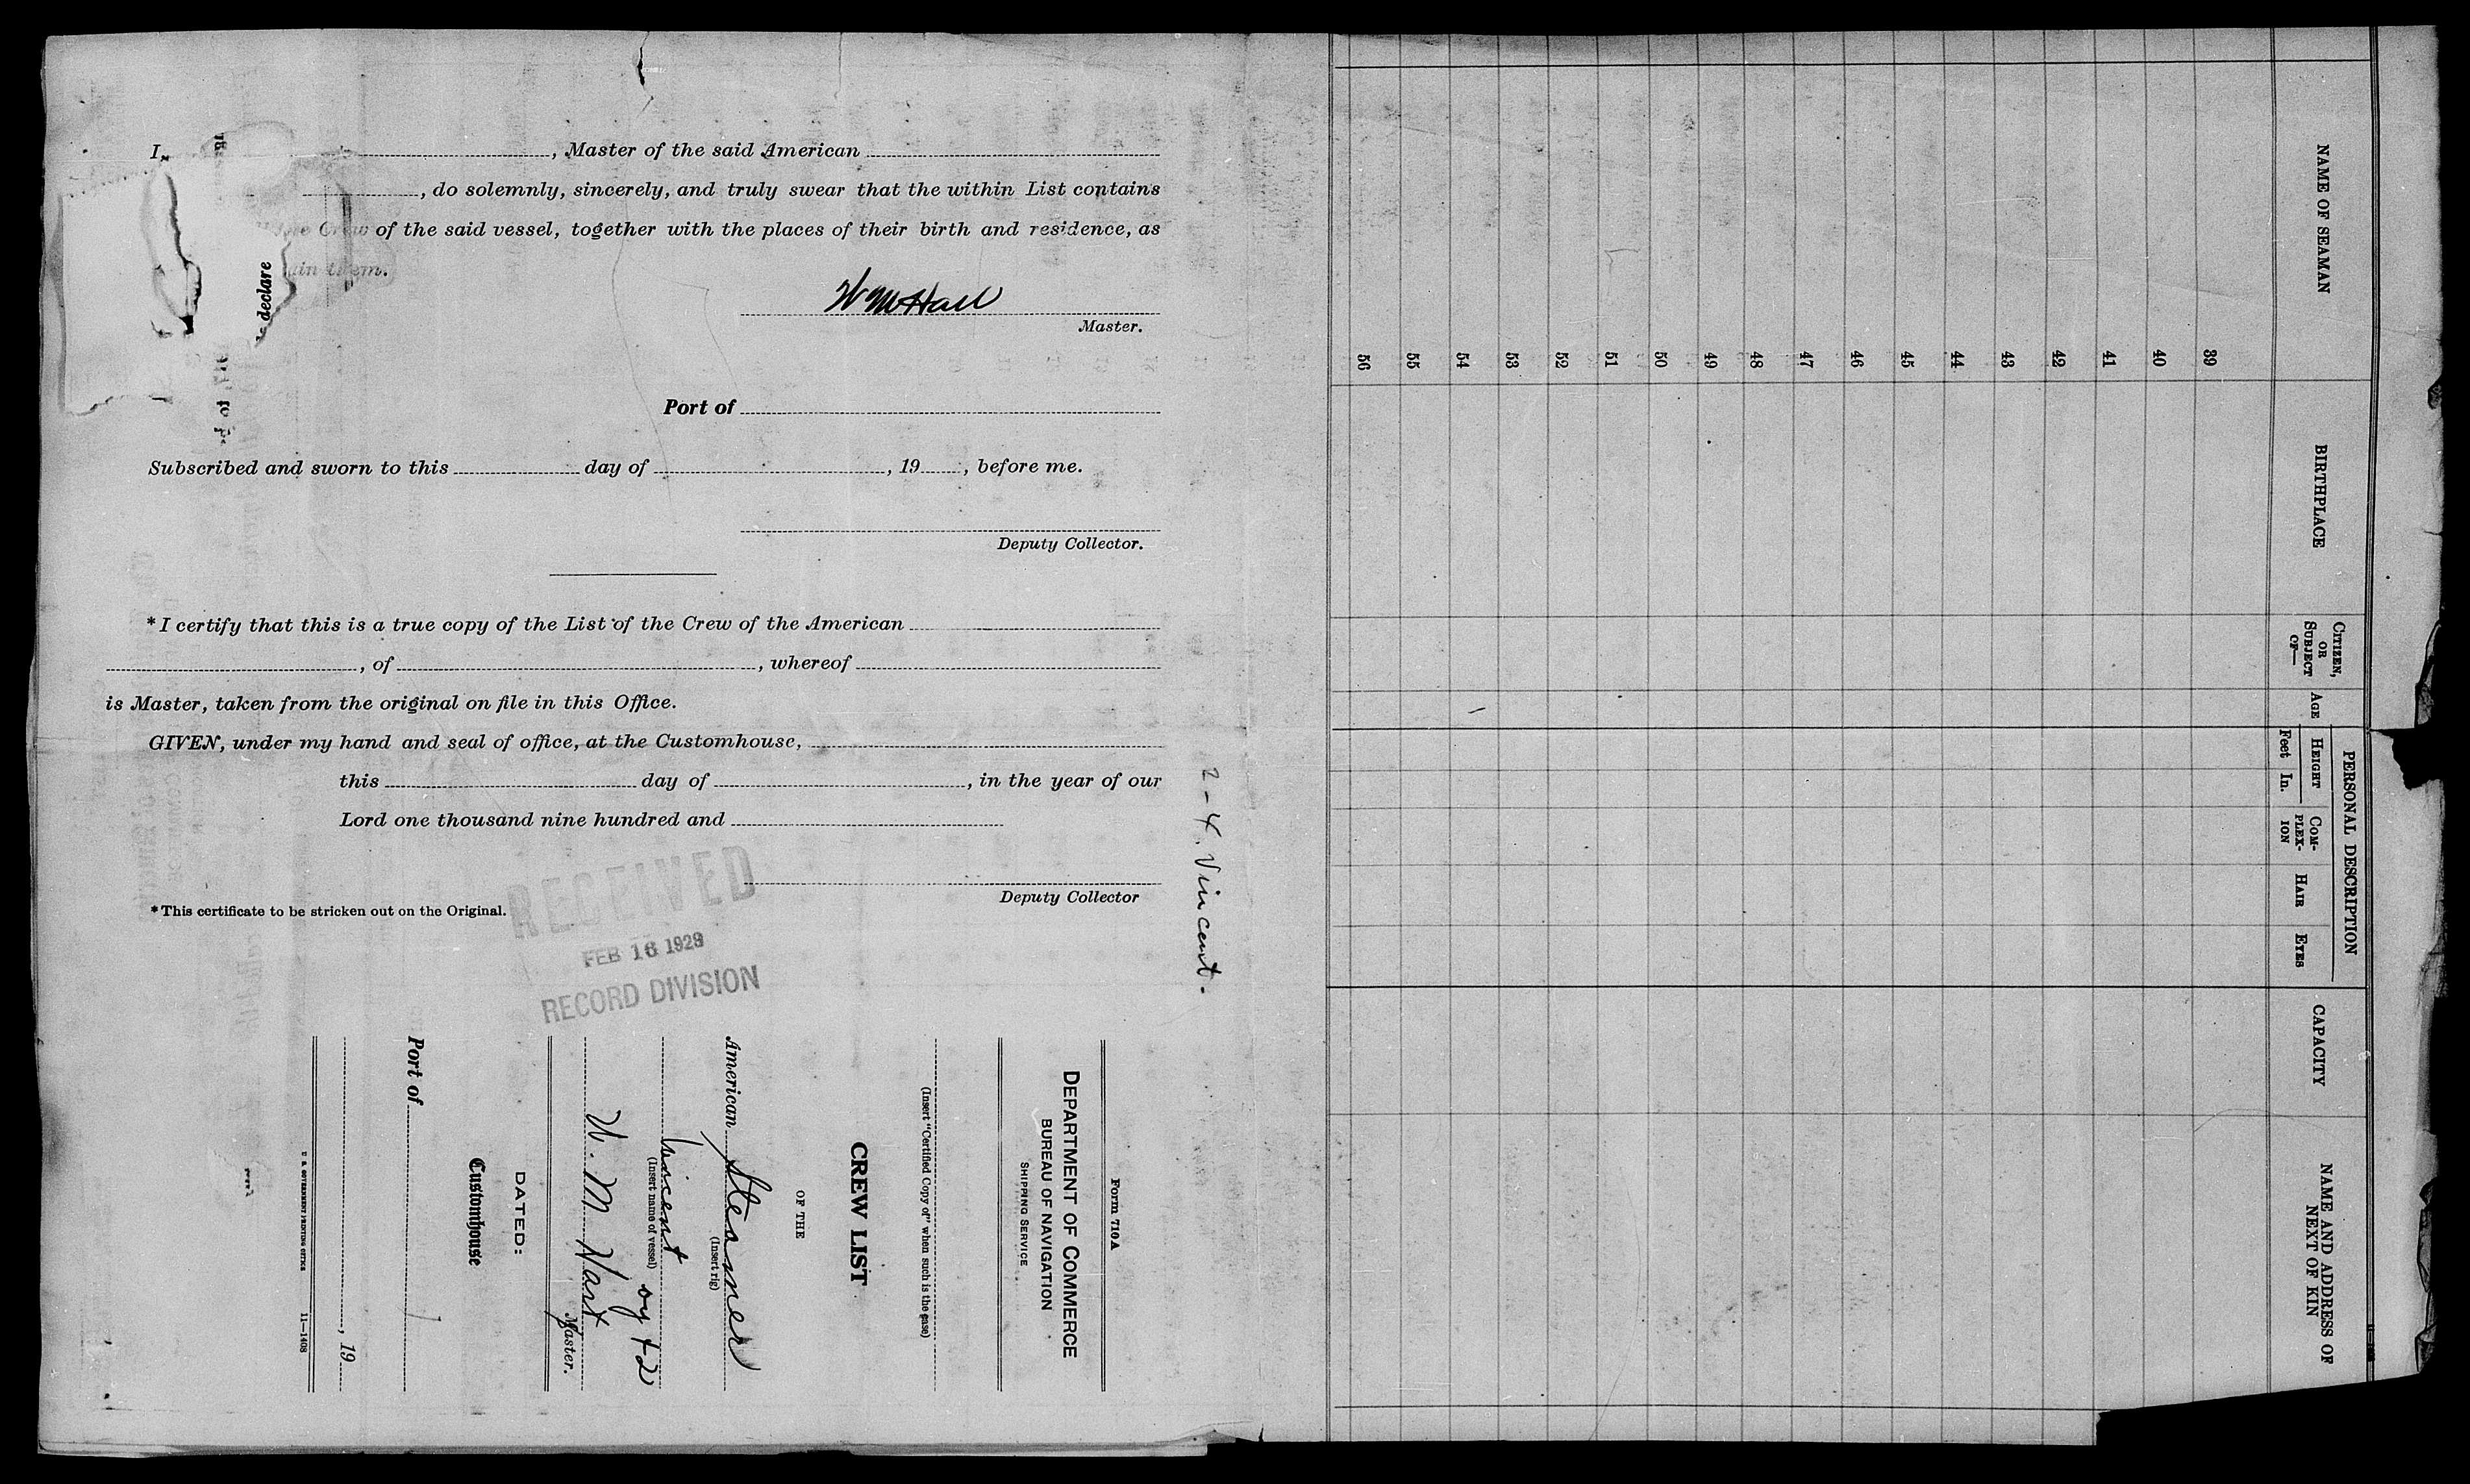 I, , Master of the said American
, do solemnly, sincerely, and truly swear that the within List contains
of the said vessel, together with the places of their birth and residence, as
them.
declare
Wm Hall
Master.
Port of
Subscribed and sworn to this day of , 19 , before me.
Deputy Collector.
* I certify that this is a true copy of the List of the Crew of the American
, of , whereof
is Master, taken from the original on file in this Office.
GIVEN, under my hand and seal of office, at the Customhouse,
this day of , in the year of our
Lord one thousand nine hundred and
Deputy Collector
* This certificate to be stricken out on the Original.
RECEIVED
FEB 16 1929
RECORD DIVISION
2-4. Vincent.
Form 710A
DEPARTMENT OF COMMERCE
BUREAU OF NAVIGATION
SHIPPING SERVICE
(Insert "Certified Copy of" when such is the case)
CREW LIST
OF THE
American Steamer
(Insert rig)
Vincent
(Insert name of vessel)
W. M
Master.
DATED:
Customhouse
Port of
, 19
U. S. GOVERNMENT PRINTING OFFICE 11—1408
NAME OF SEAMAN
BIRTHPLACE
CITIZEN, OR SUBJECT OF—
AGE
PERSONAL DESCRIPTION
HEIGHT
Feet In.
COM-PLEX-ION
HAIR
EYES
CAPACITY
NAME AND ADDRESS OF NEXT OF KIN
39
40
41
42
43
44
45
46
47
48
49
50
51
52
53
54
55
56